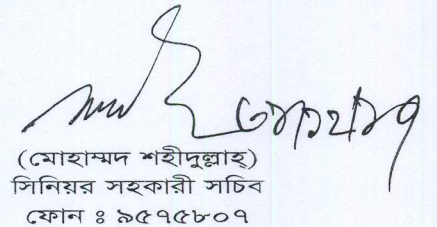 (মোহাম্মদ শহীদুল্লাহ্)
সিনিয়র সহকারী সচিব
ফোন ঃ ৯৫৭৫৮০৭